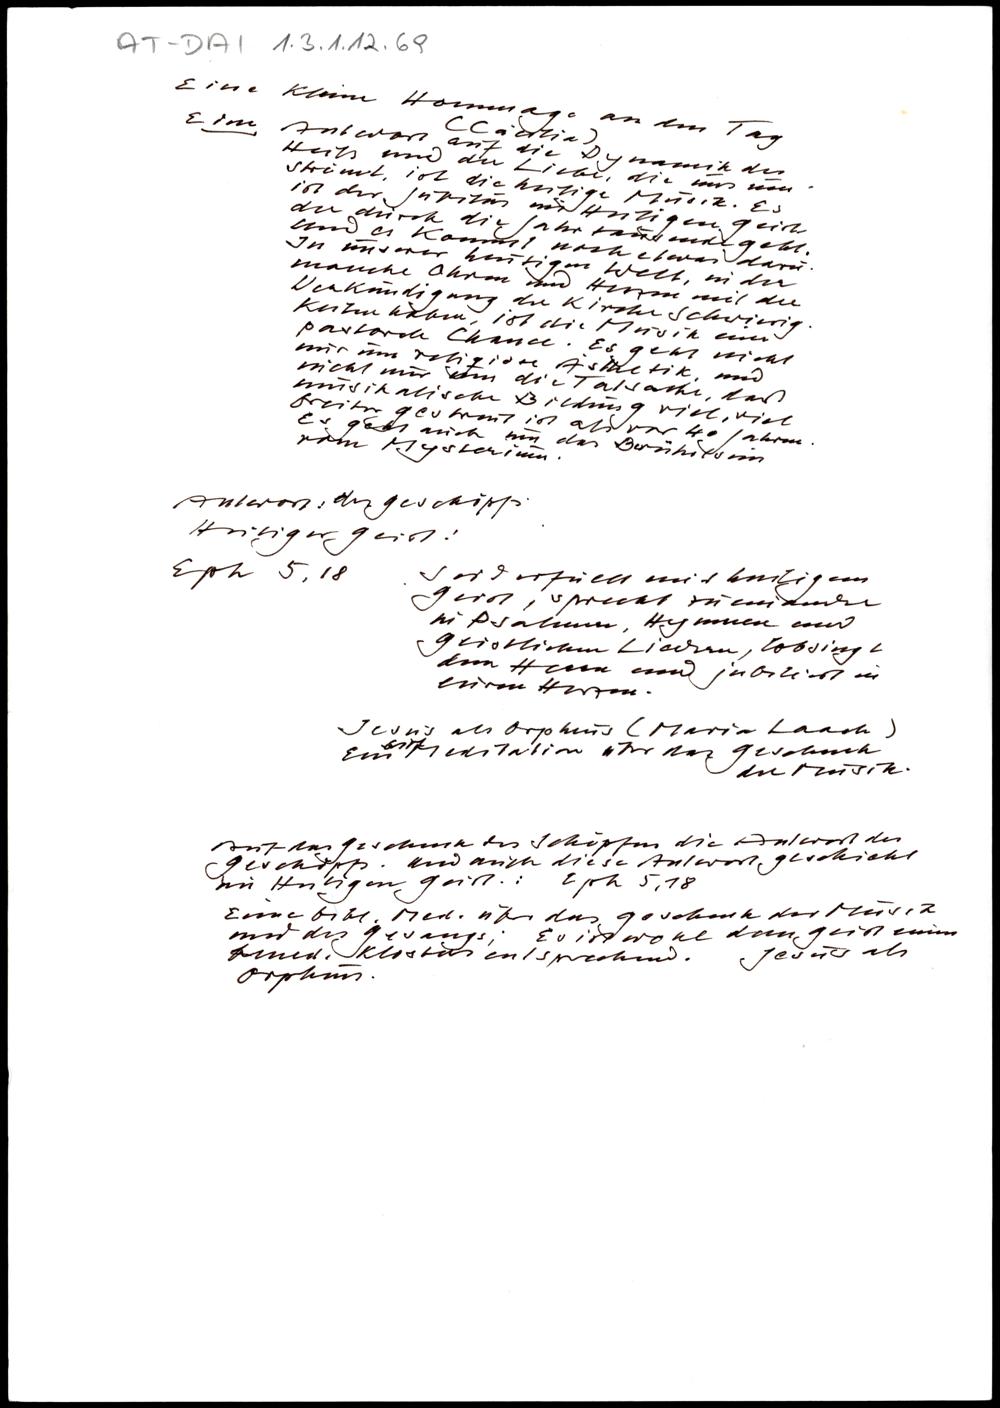 AT-DAI 1.3.1.12.69
Eine kleine Hommage an den Tag
(Cäcilia)
Eine Antwort auf die Dynamik des
Heils und der Liebe, die uns um-
strömt, ist die heilige Musik. Es
ist der Jubilus im Heiligen Geist
der durch die Jahrtausende geht.
Und es kommt noch etwas dazu.
In unserer heutigen Welt, in der
manche Ohren und Herzen mit der
Verkündigung der Kirche Schwierig-
keiten haben, ist die Musik eine
pastorale Chance. Es geht nicht
nur um religiöse Ästhetik, und
nicht nur um die Tatsache, daß
musikalische Bildung viel, viel
breiter gestreut ist als vor 40 Jahren.
Es geht auch um das Berührtsein
vom Mysterium.
Antwort des Geschöpfs
Heiliger Geist!
Eph 5,18
Seid erfüllt mit heiligem
Geist, sprecht zueinander
in Psalmen, Hymnen und
geistlichen Liedern, lobsingt
dem Herrn und jubiliert in
euren Herzen.
Jesus als Orpheus (Maria Laach)
Eine Meditation über das Geschenk
der Musik.
Auf das Geschenk des Schöpfers die Antwort des
Geschöpfs. Und auch diese Antwort geschieht
im Heiligen Geist: Eph 5,18
Eine bibl. Med. über das Geschenk der Musik
und des Gesangs; Es ist wohl dem Geist eines
bened. Klosters entsprechend. Jesus als
Orpheus.